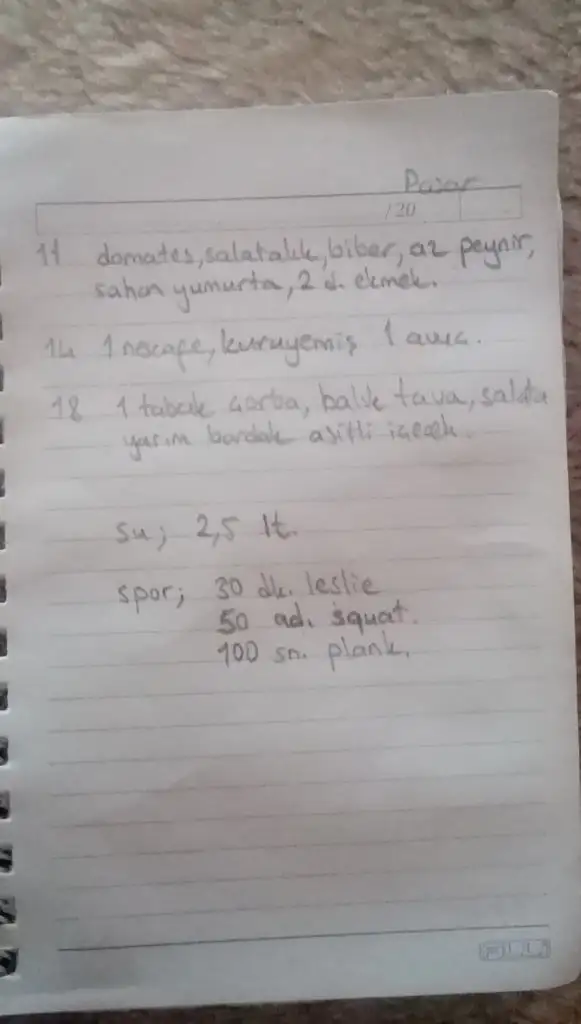 Pazar
/20
11 domates, salatalık, biber, az peynir,
sahan yumurta, 2 d. ekmek.
14 1 nescafe, kuruyemiş 1 avuç.
18 1 tabak çorba, balık tava, salata
yarım bardak asitli içecek.
su; 2,5 lt.
spor; 30 dk. leslie
50 ad. squat.
100 sn. plank.